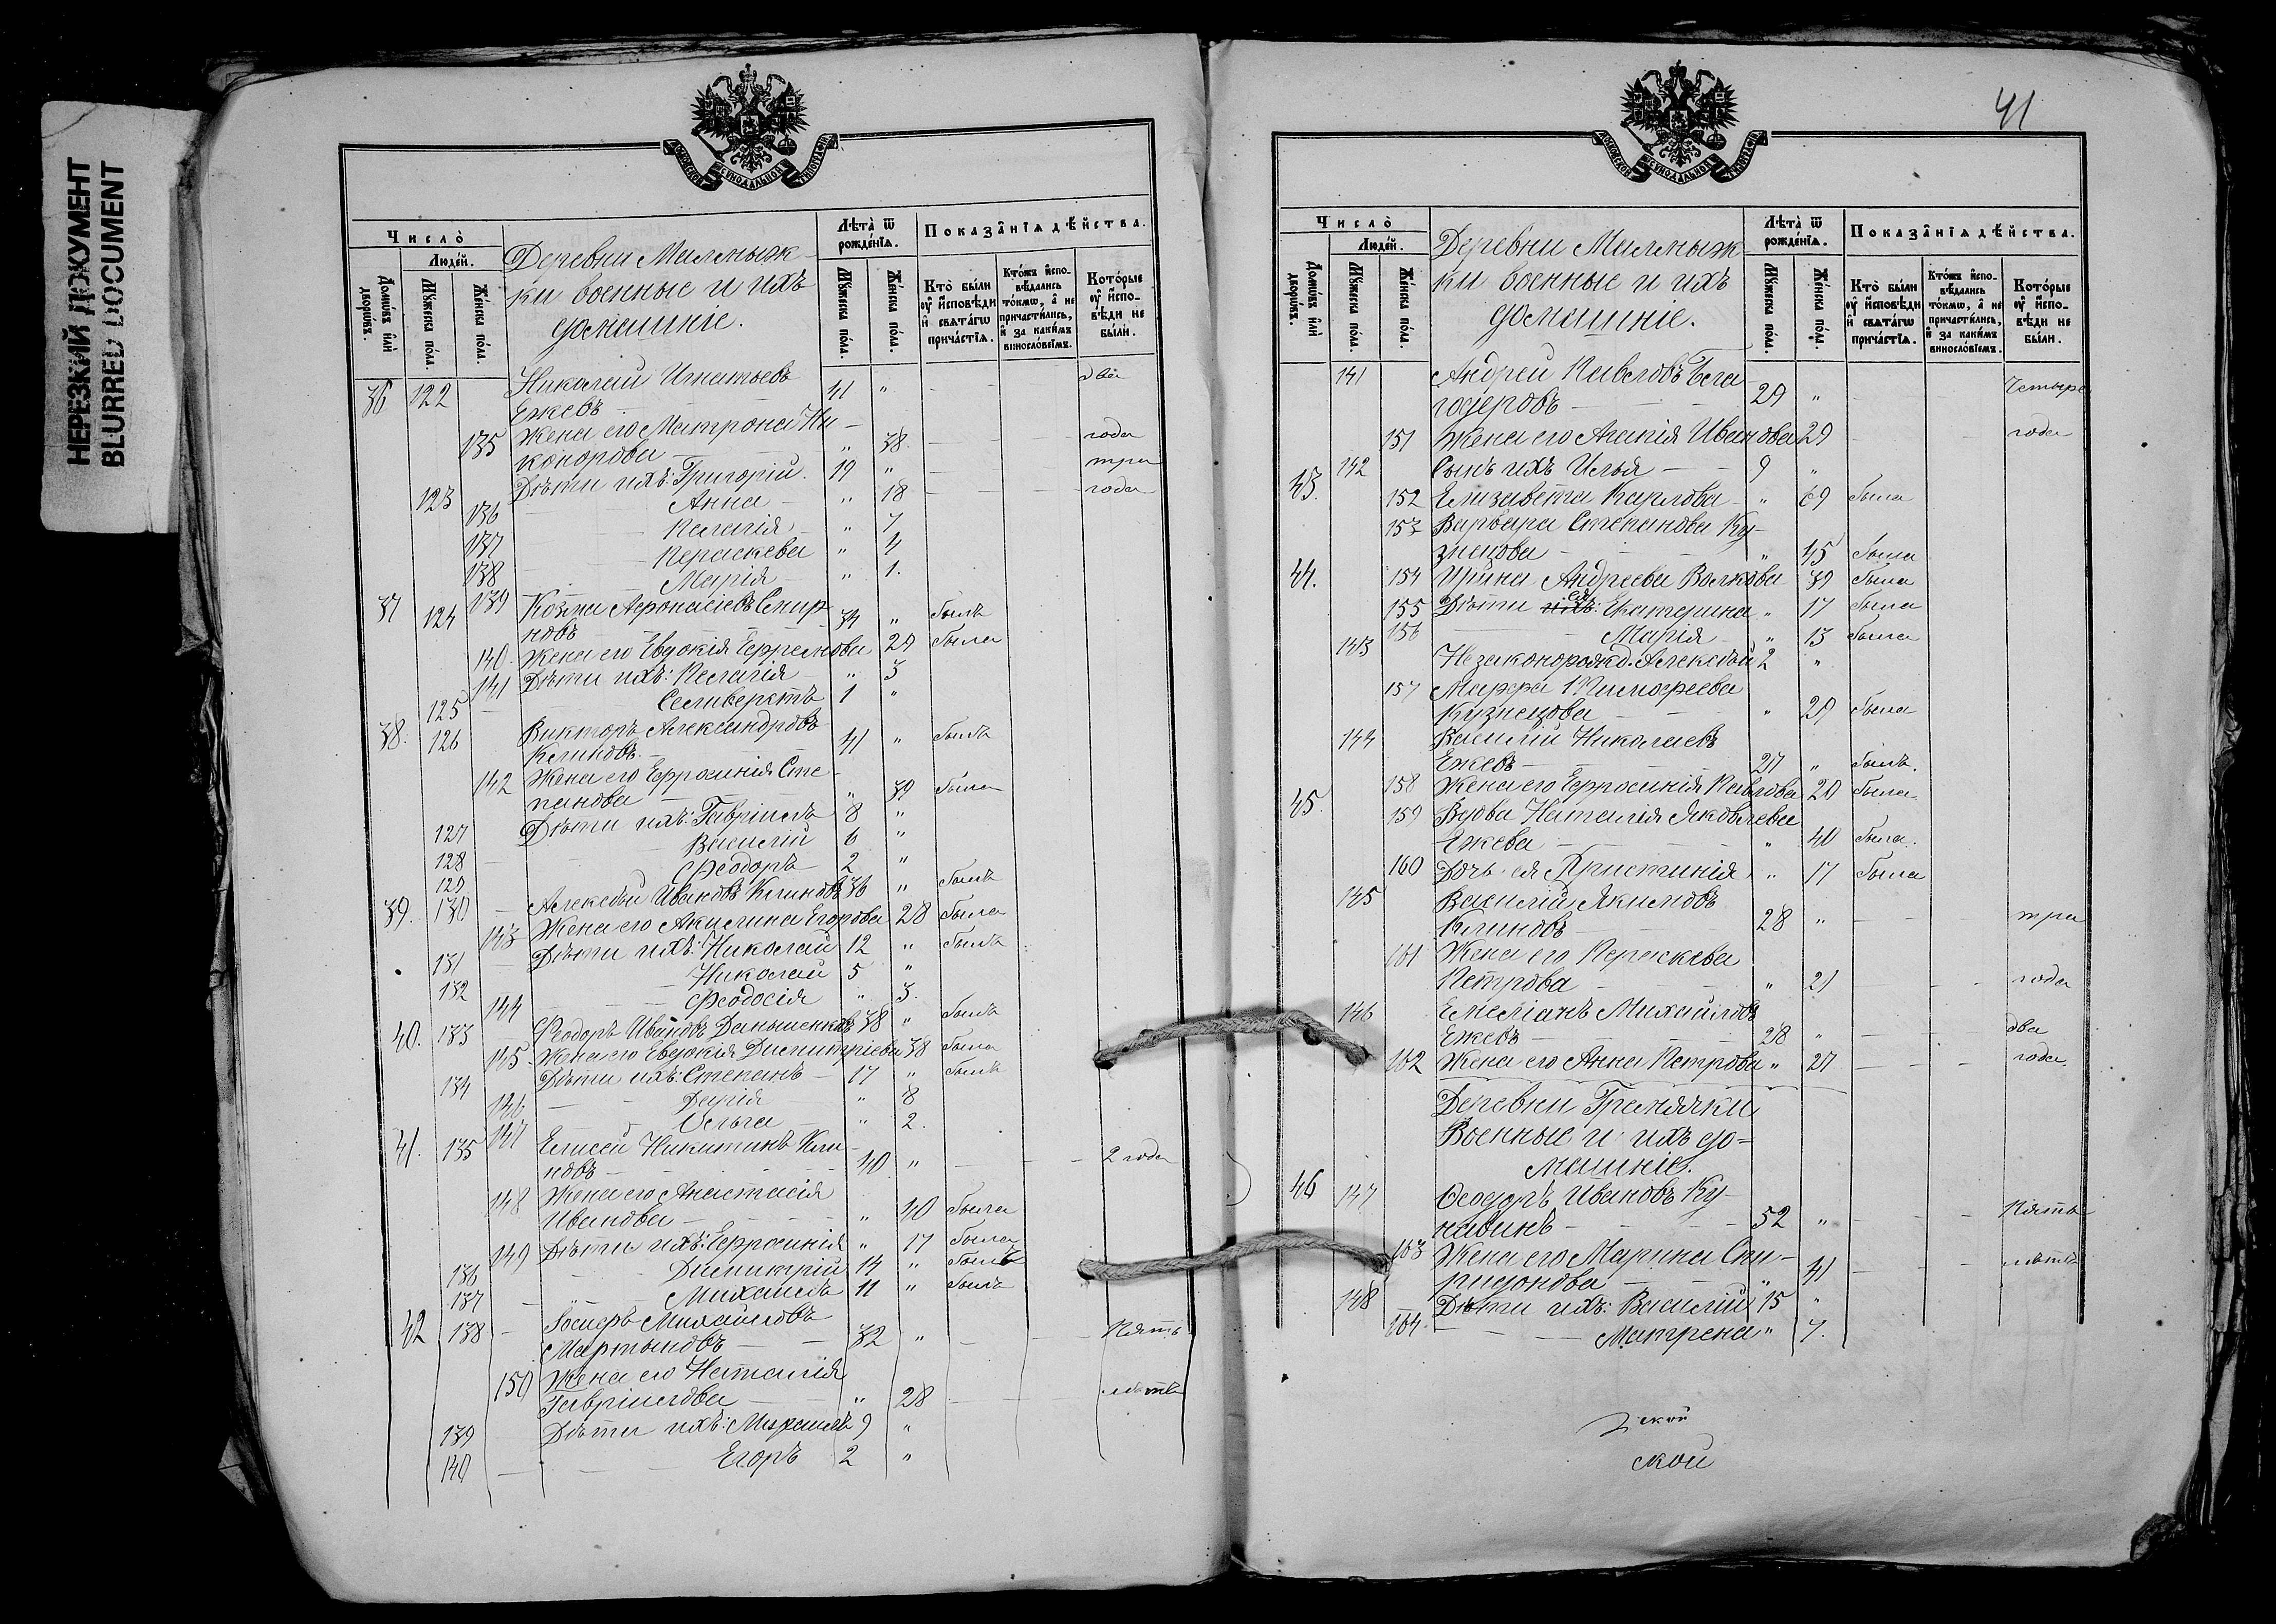 НЕРЕЗКИЙ ДОКУМЕНТ
BLURRED DOCUMENT
МОСКОВСКОЙ СѴНОДАЛЬНОЙ ТИПОГРАФІИ
Число̀
Людéй.
Домѡ́въ и҆лѝ дворѡ́въ.
Мꙋ́жеска по́ла.
Же́нска по́ла.
Деревни Малмыж-
ки военные и ихъ
домашніе.
Лѣта̀ ѿ рожде́нїѧ.
Мꙋ́жеска по́ла.
Же́нска по́ла.
Показа̑нїѧ дѣ́йства.
Кто̀ бы́ли оу҆ и҆сповѣди и҆ свѧта́гѡ прича́стїѧ.
Кто́жъ и҆спо-вѣдались то́кмѡ, а҆ не причасти́лись, и҆ за каки́мъ винослѡ́вїемъ.
Кото́рые оу҆ и҆спо-вѣди не бы́ли.
36 122 Николай Игнатьевъ два
Ежевъ 41 "
135 Жена его Матрона Ни-
конорова " 38 года
123 Дѣти ихъ: Григорій 19 " три
136 Анна " 18 года
137 Пелагія " 7
138 Параскева " 4
139 Марія " 1.
37 124 Козма Афонасіевъ Смир-
новъ 34 " былъ
140. Жена его Евдокія Ефремова 29 была
141 Дѣти ихъ: Пелагія " 3
125 Селиверстъ 1 "
38. 126 Викторъ Александровъ
Климовъ 41 " былъ
142 Жена его Ефросинія Сте-
панова " 39 была
127 Дѣти ихъ: Гавріилъ 8 "
128 Василій 6 "
129 Феодоръ 2 "
39. 130 Алексѣй Ивановъ Климовъ 36 " былъ
143 Жена его Акилина Егорова 28 была
131 Дѣти ихъ: Николай 12 " былъ
132 Николай 5 "
144 Феодосія " 3.
40. 133 Феодоръ Ивановъ Даньшенковъ 38 " былъ
145 Жена его Евдокія Димитріева 38 была
134 Дѣти ихъ: Степанъ 17 " былъ
146 Дарія " 8
147 Ольга " 2.
41. 135 Елисей Никитинъ Кли-
мовъ 40 " 2 года
148 Жена его Анастасія
Иванова " 40 была
149 Дѣти ихъ: Ефросинія " 17 была
136 Димитрій 14 " былъ
137 Михаилъ 11 " былъ
42 138 Михайловъ
Мартыновъ 32 " Пять
150 Жена его Наталія
Гавріилова " 28 лѣтъ
139 Дѣти ихъ: Михаилъ 9 "
140 Егоръ 2 "
41
МОСКОВСКОЙ СѴНОДАЛЬНОЙ ТИПОГРАФІИ
Число̀
Людéй.
Домѡ́въ и҆лѝ дворѡ́въ.
Мꙋ́жеска по́ла.
Же́нска по́ла.
Деревни Малмыж
ки военные и ихъ
домашніе.
Лѣта̀ ѿ рожде́нїѧ.
Мꙋ́жеска по́ла.
Же́нска по́ла.
Показа̑нїѧ дѣ́йства.
Кто̀ бы́ли оу҆ и҆сповѣди и҆ свѧта́гѡ прича́стїѧ.
Кто́жъ и҆спо-вѣдались то́кмѡ, а҆ не причасти́лись, и҆ за каки́мъ винослѡ́вїемъ.
Кото́рые оу҆ и҆спо-вѣди не бы́ли.
141 Андрей Павловъ Четыре
29 "
151 Жена его Агапія Иванова 29 года
142 Сынъ ихъ Илья 9 "
43. 152 Елизавета Карлова " 69 была
153 Варвара Степанова Ку-
знецова " 45 была
44. 154 Ирина Андреева Волкова 39 была
155 Дѣти ея: Екатерина " 17 была
156 Марія " 13 была
143 Незаконорожд. Алексѣй 2 "
157 Марфа Тимофеева
Кузнецова " 29 была
144 Василій Николаевъ
Ежевъ 27 " былъ.
158 Жена его Ефросинія Павлова 20 была
45. 159 Вдова Наталія Яковлева
Ежева " 40 была.
160 Дочь ея Христинія " 17 была
145 Василій Якимовъ
Климовъ 28 " три
161 Жена его Параскева
Петрова " 21 года
146 Емеліанъ Михайловъ
Ежевъ 28 " два
162 Жена его Анна Петрова " 27 года
Деревни Гремячки
Военные и ихъ до-
машніе.
46 147 Ѳеодоръ Ивановъ Ку-
навинъ 52 " Пять
163 Жена его Марина Спи-
ридонова " 41 лѣтъ
148 Дѣти ихъ: Василій 15 "
164 Матрена " 7.
ской
ской